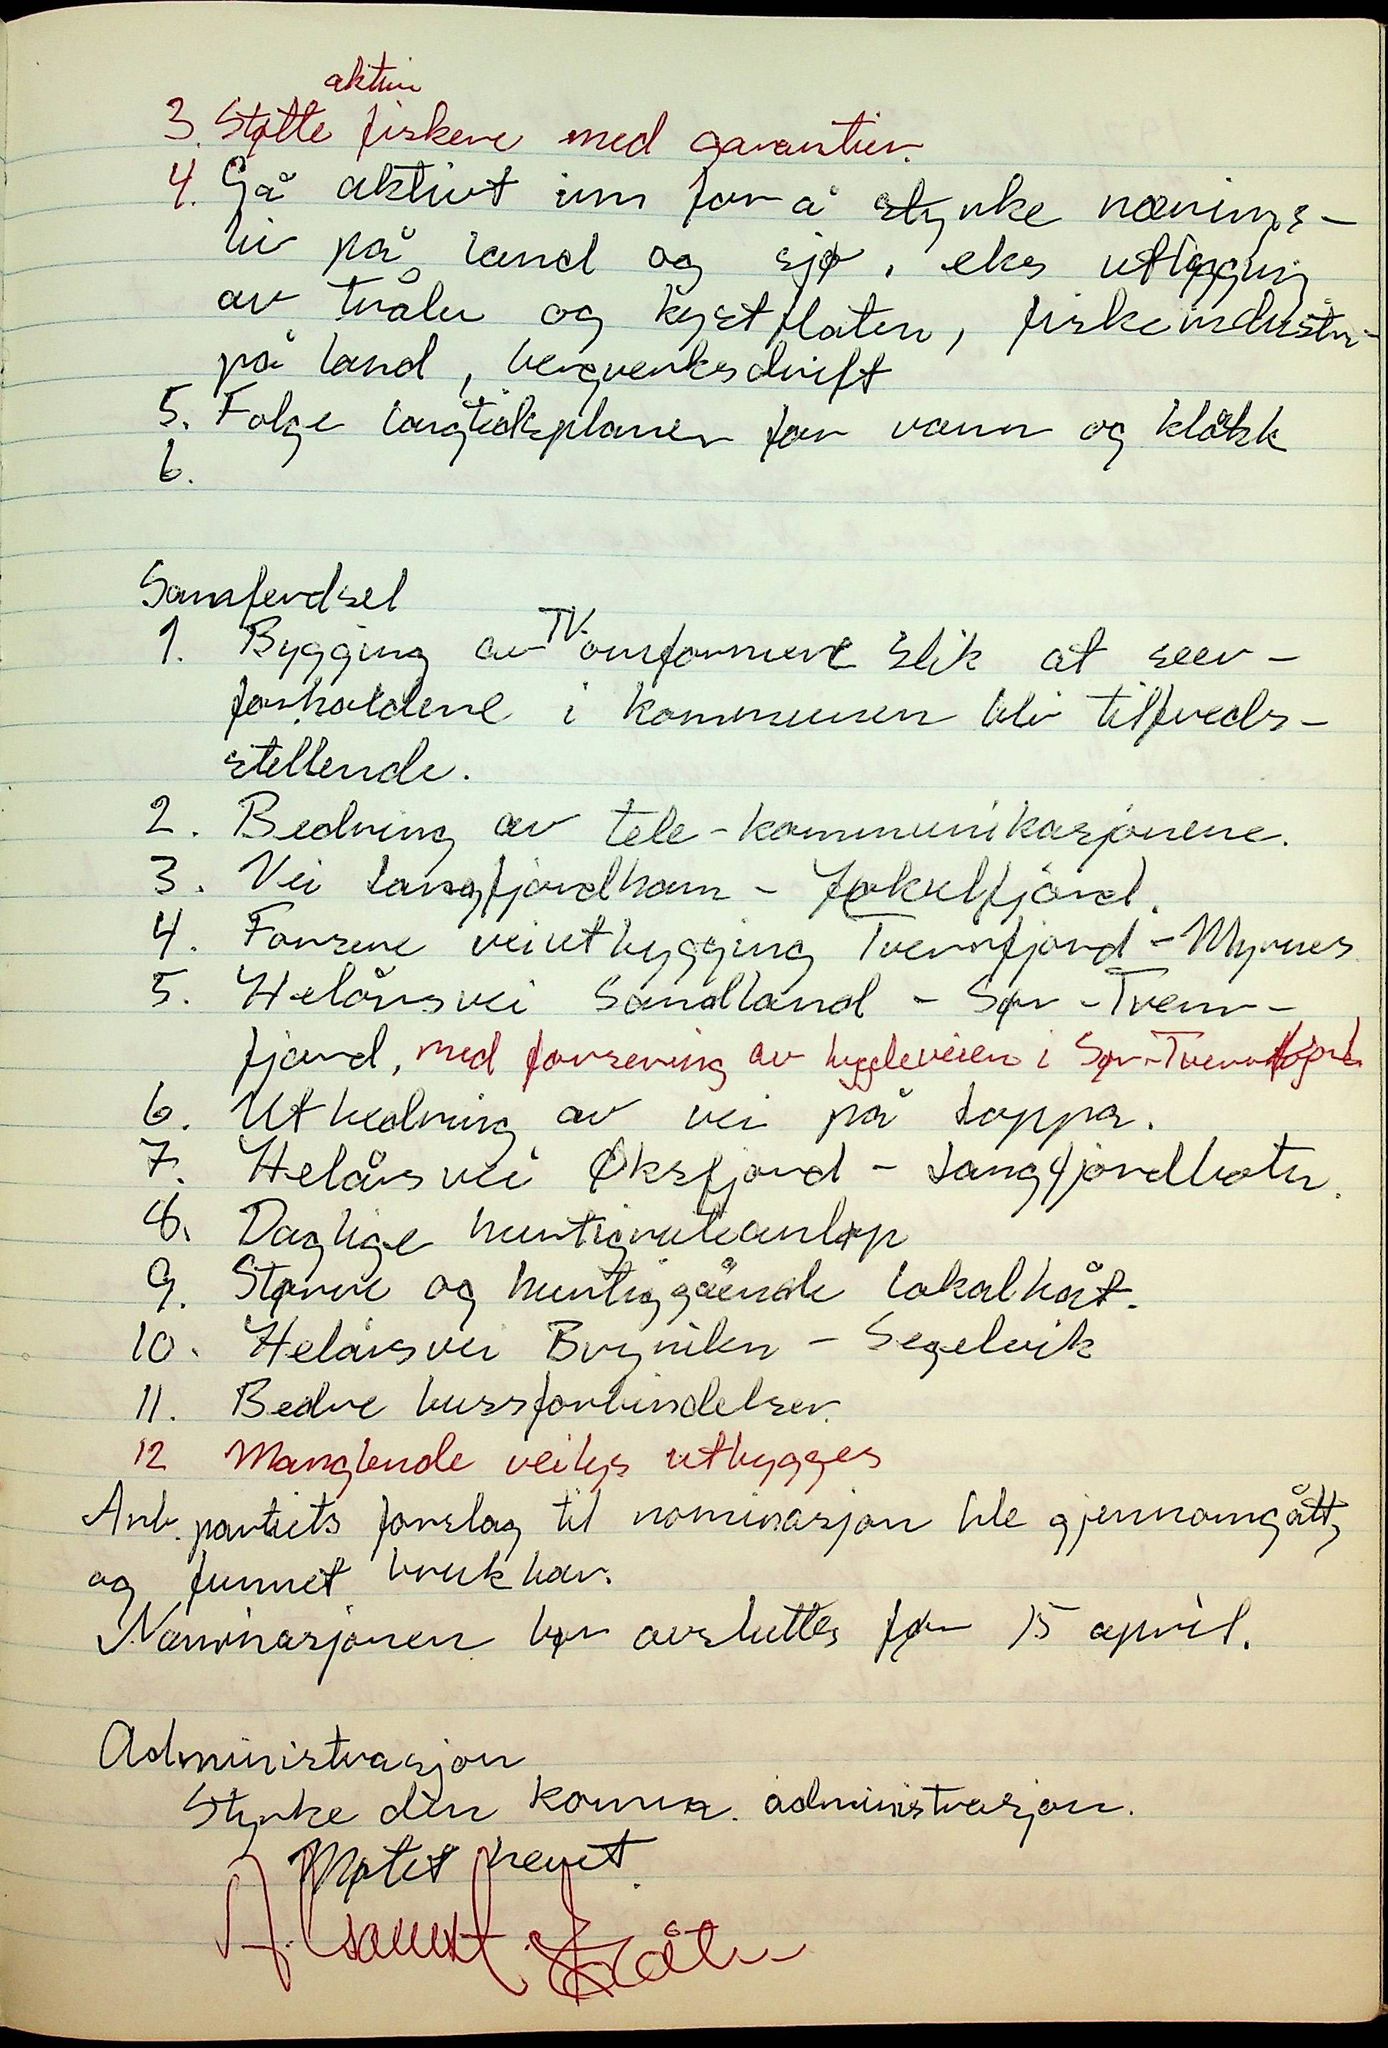 aktive
3. Støtte fiskere med garantier.
4. Gå aktivt inn for å styrke nærings-
liv på land og sjø, eks utbygging
av tråler og kystflåten, fiskeindustri
på land, bergverksdrift
5. Følge langtidsplanen for vann og kloakk
6.
Samferdsel
1. Bygging av TV-omformere slik at seer-
forholdene i kommunen blir tilfreds-
stillende.
2. Bedring av tele-kommunikasjonene.
3. Vei Langfjordhamn - Jøkelfjord.
4. Forsere veiutbygging Tverrfjord - Myrnes
5. Helårsvei Sandland - Sør-Tverr-
fjord, med forsering av bygdeveien i Sør-Tverrfjord
6. Utbedring av vei på Loppa.
7. Helårsvei Øksfjord - Langfjordbotn.
8. Daglige hurtigruteanløp
9. Større og hurtiggående lokalbåt.
10. Helårsvei Brynilen - Segelvik
11. Bedre bussforbindelser.
12 Manglende veilys utbygges
Arb. partiets forslag til nominasjon ble gjennomgått,
og funnet brukbar.
Nominasjonen bør avsluttes før 15 april.
Administrasjon
Styrke den komm. administrasjon.
Møtet hevet.